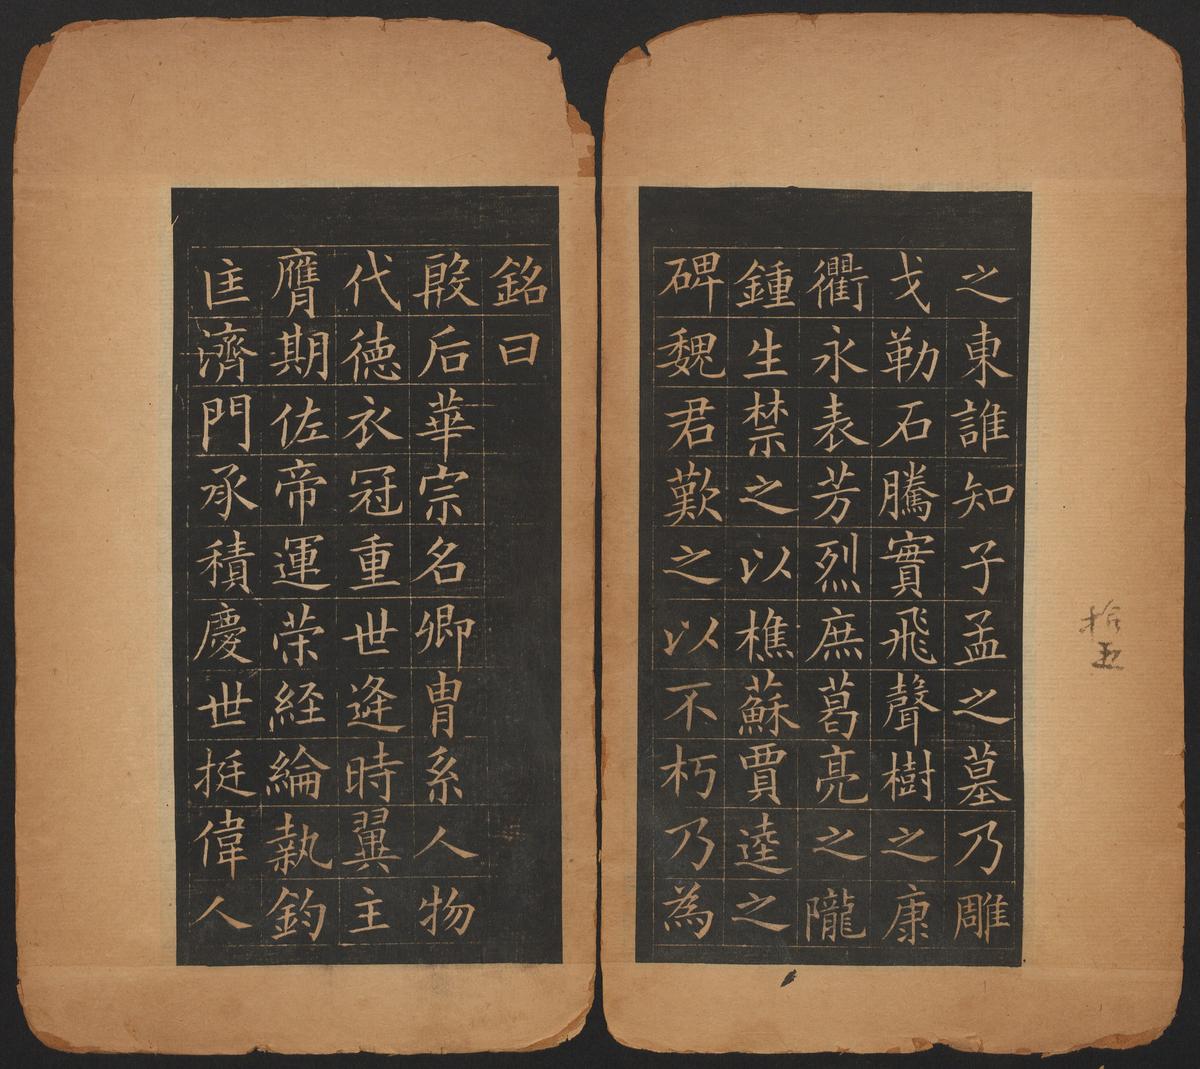 之東誰知子孟之墓乃雕
戈勒石騰實飛聲樹之康
衢永表芳烈庶葛亮之隴
鍾生禁之以樵蘇賈逵之
碑魏君歎之以不朽乃為
銘曰
殷后華宗名卿冑系人物
代德衣冠重世逄時翼主
膺期佐帝運荣経綸執鈞
匡濟門承積慶世挺偉人
拾五